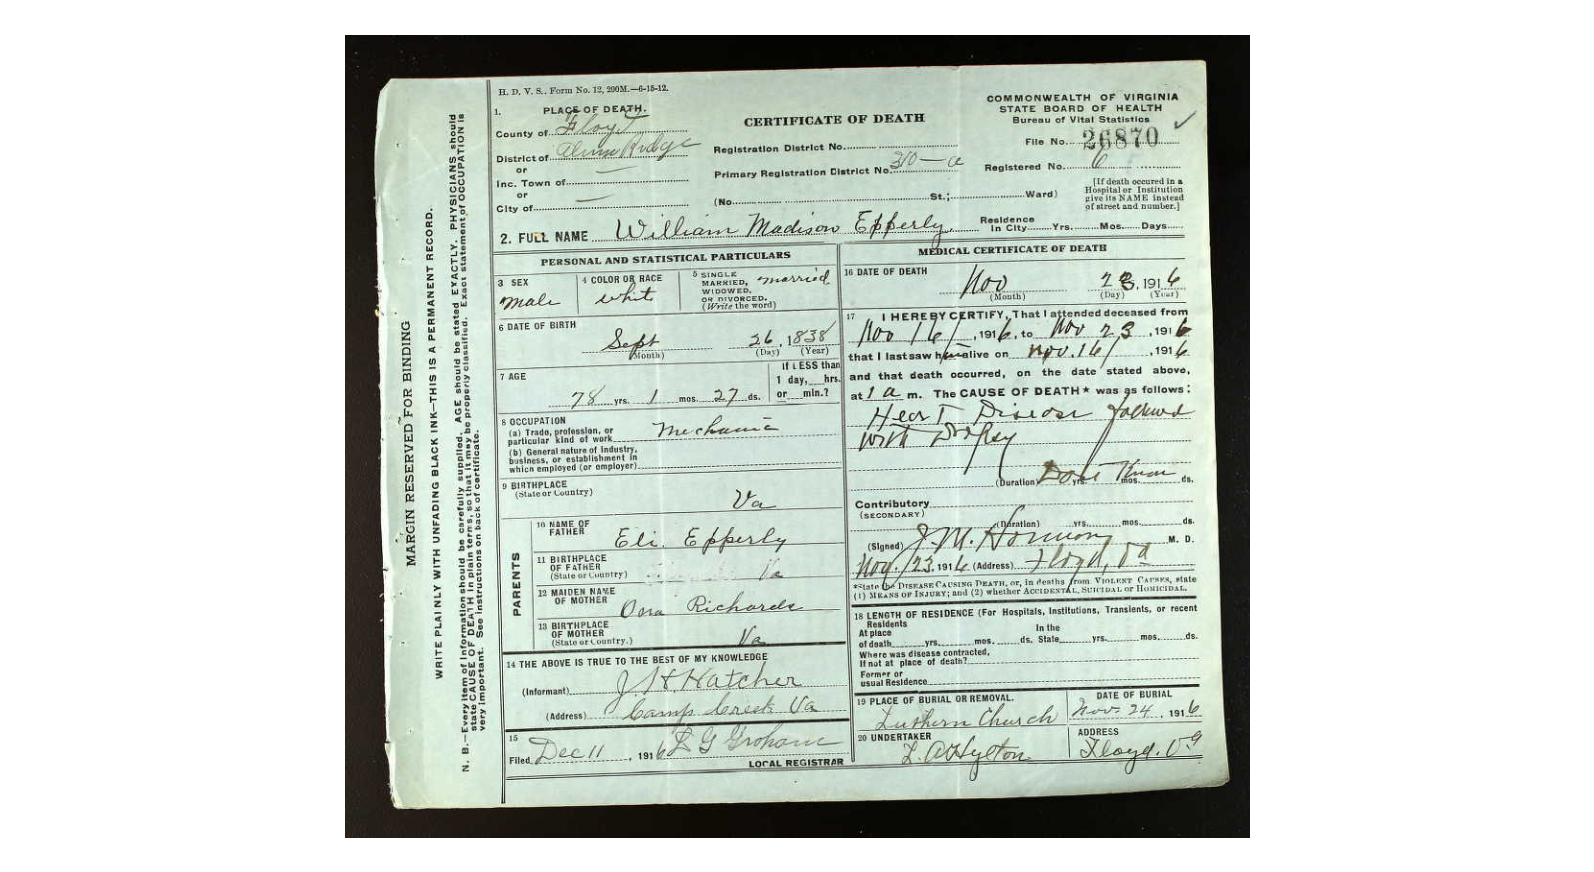 H. D. V. S., Form No. 12, 200M.—6-15-12.
1. PLACE OF DEATH.
County of Floyd
District of Alum Ridge
or
Inc. Town of —
or
City of —
CERTIFICATE OF DEATH
Registration District No.
Primary Registration District No. 310—a
(No. St.; Ward)
COMMONWEALTH OF VIRGINIA
STATE BOARD OF HEALTH
Bureau of Vital Statistics
File No. 26870 ✓
Registered No. 6
[If death occured in a
Hospital or Institution
give its NAME instead
of street and number.]
2. FULL NAME William Madison Epperly
Residence
In City Yrs. Mos. Days
PERSONAL AND STATISTICAL PARTICULARS
3 SEX
male
4 COLOR OR RACE
whit
5 SINGLE
MARRIED,
WIDOWED,
OR DIVORCED.
(Write the word)
married
6 DATE OF BIRTH
Sept 26, 1838
(Month) (Day) (Year)
7 AGE
78 yrs. 1 mos. 27 ds.
If LESS than
1 day, hrs.
or min.?
8 OCCUPATION
(a) Trade, profession, or
particular kind of work Mechanic
(b) General nature of industry,
business, or establishment in
which employed (or employer)
9 BIRTHPLACE
(State or Country)
Va
PARENTS
10 NAME OF
FATHER
Eli. Epperly
11 BIRTHPLACE
OF FATHER
(State or Country)
Va
12 MAIDEN NAME
OF MOTHER
Richards
13 BIRTHPLACE
OF MOTHER
(State or Country.)
Va
14 THE ABOVE IS TRUE TO THE BEST OF MY KNOWLEDGE
(Informant) J H Hatcher
(Address) Camp Creek Va
15
Filed Dec 11, 1916 L G Graham
LOCAL REGISTRAR
MEDICAL CERTIFICATE OF DEATH
16 DATE OF DEATH
Nov 23, 1916
(Month) (Day) (Year)
17 I HEREBY CERTIFY, That I attended deceased from
Nov 16/, 1916, to Nov 23, 1916
that I last saw him alive on Nov. 16/, 1916
and that death occurred, on the date stated above,
at 1 a m. The CAUSE OF DEATH* was as follows:
Heart Disease
with Dropsy
(Duration) Dont Know yrs. mos. ds.
Contributory
(SECONDARY)
(Duration) yrs. mos. ds.
(Signed) J. M. M. D.
Nov. 23, 1916 (Address) Floyd, Va
*State the DISEASE CAUSING DEATH, or, in deaths from VIOLENT CAUSES, state
(1) MEANS OF INJURY; and (2) whether ACCIDENTAL, SUICIDAL or HOMICIDAL.
18 LENGTH OF RESIDENCE (For Hospitals, Institutions, Transients, or recent
Residents
At place In the
of death yrs. mos. ds. State yrs. mos. ds.
Where was disease contracted,
If not at place of death?
Former or
usual Residence
19 PLACE OF BURIAL OR REMOVAL.
Luthern Church
DATE OF BURIAL
Nov. 24, 1916
20 UNDERTAKER
L. A. Hylton
ADDRESS
Floyd. Va
MARGIN RESERVED FOR BINDING
WRITE PLAINLY WITH UNFADING BLACK INK—THIS IS A PERMANENT RECORD.
N. B.—Every item of information should be carefully supplied. AGE should be stated EXACTLY. PHYSICIANS should
state CAUSE OF DEATH in plain terms, so that it may be properly classified. Exact statement of OCCUPATION is
very important. See instructions on back of certificate.